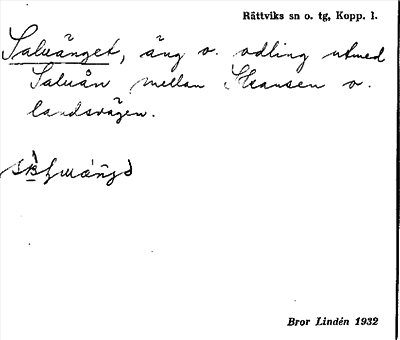 Rättviks sn o. tg, Kopp. l.
Saluänget, äng o. odling utmed
Saluån mellan Stransen o.
landsvägen.
Bror Lindén 1932